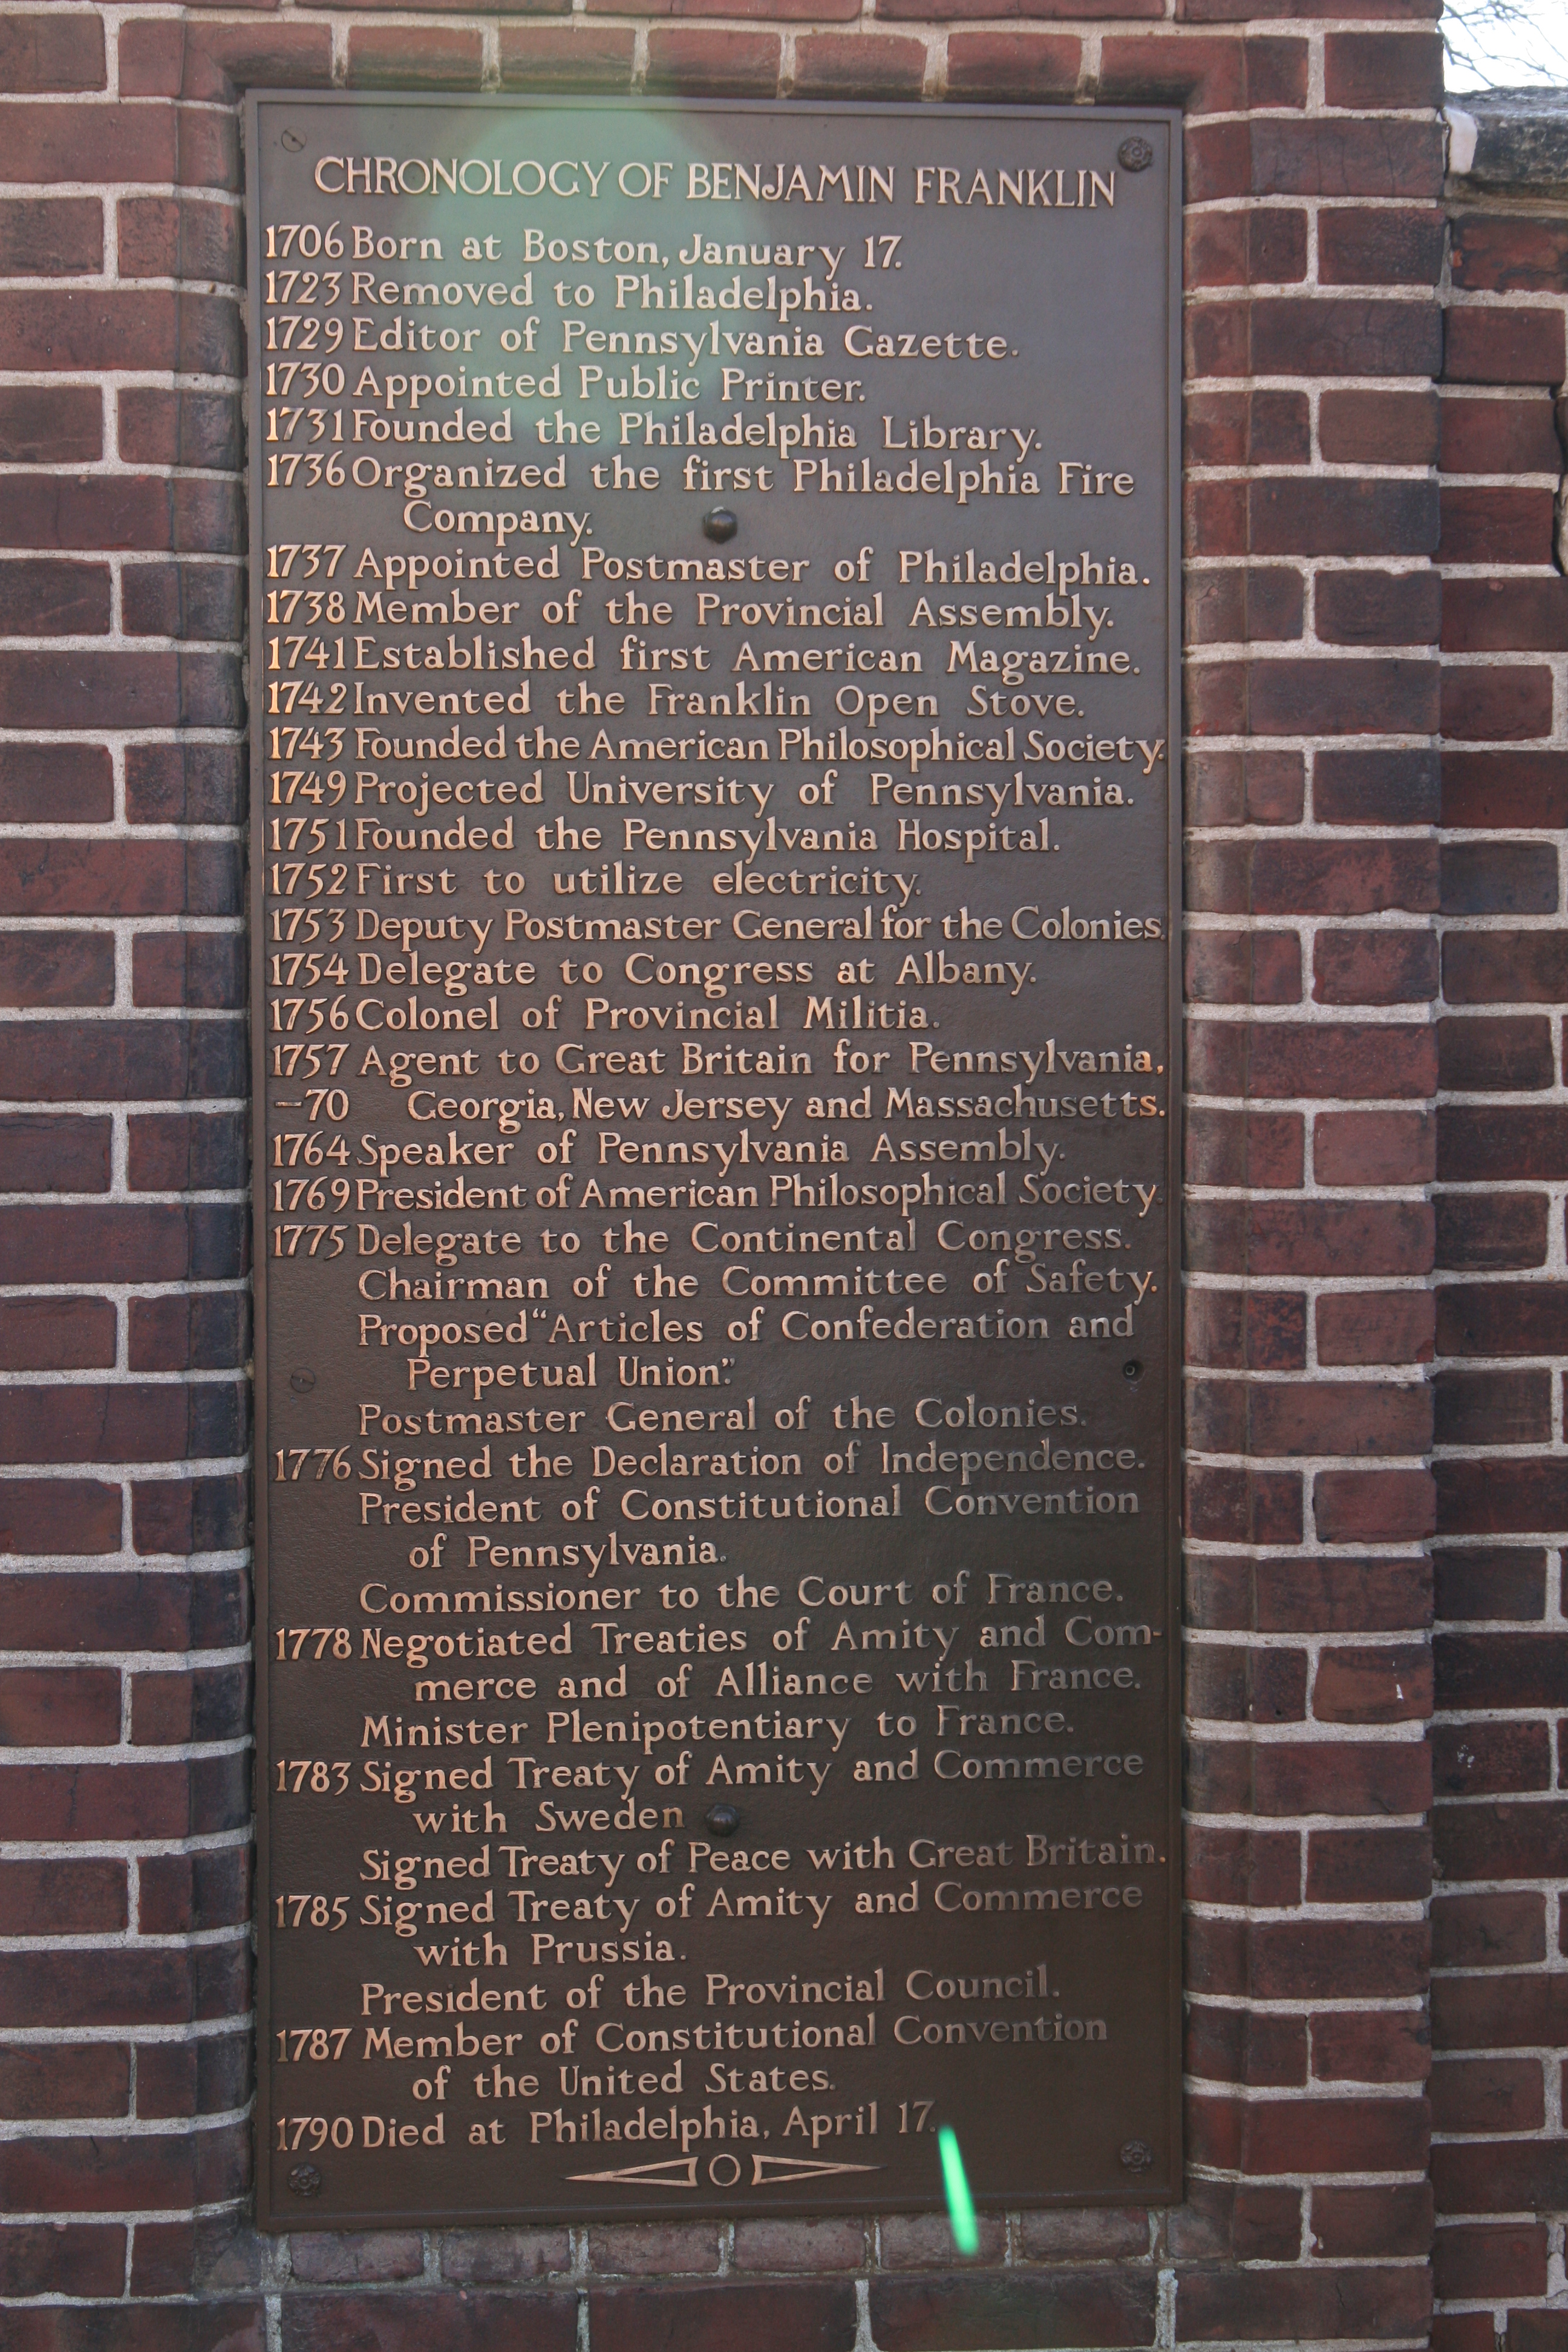 CHRONOLOGY OF BENJAMIN FRANKLIN
1706 Born at Boston, January 17.
1723 Removed to Philadelphia.
1729 Editor of Pennsylvania Gazette.
1730 Appointed Public Printer.
1731 Founded the Philadelphia Library.
1736 Organized the first Philadelphia Fire
Company.
1737 Appointed Postmaster of Philadelphia.
1738 Member of the Provincial Assembly.
1741 Established first American Magazine.
1742 Invented the Franklin Open Stove.
1743 Founded the American Philosophical Society.
1749 Projected University of Pennsylvania.
1751 Founded the Pennsylvania Hospital.
1752 First to utilize electricity.
1753 Deputy Postmaster General for the Colonies.
1754 Delegate to Congress at Albany.
1756 Colonel of Provincial Militia.
1757 Agent to Great Britain for Pennsylvania,
-70 Georgia, New Jersey and Massachusetts.
1764 Speaker of Pennsylvania Assembly.
1769 President of American Philosophical Society.
1775 Delegate to the Continental Congress.
Chairman of the Committee of Safety.
Proposed "Articles of Confederation and
Perpetual Union."
Postmaster General of the Colonies.
1776 Signed the Declaration of Independence.
President of Constitutional Convention
of Pennsylvania.
Commissioner to the Court of France.
1778 Negotiated Treaties of Amity and Com-
merce and of Alliance with France.
Minister Plenipotentiary to France.
1783 Signed Treaty of Amity and Commerce
with Sweden
Signed Treaty of Peace with Great Britain.
1785 Signed Treaty of Amity and Commerce
with Prussia.
President of the Provincial Council.
1787 Member of Constitutional Convention
of the United States.
1790 Died at Philadelphia, April 17.